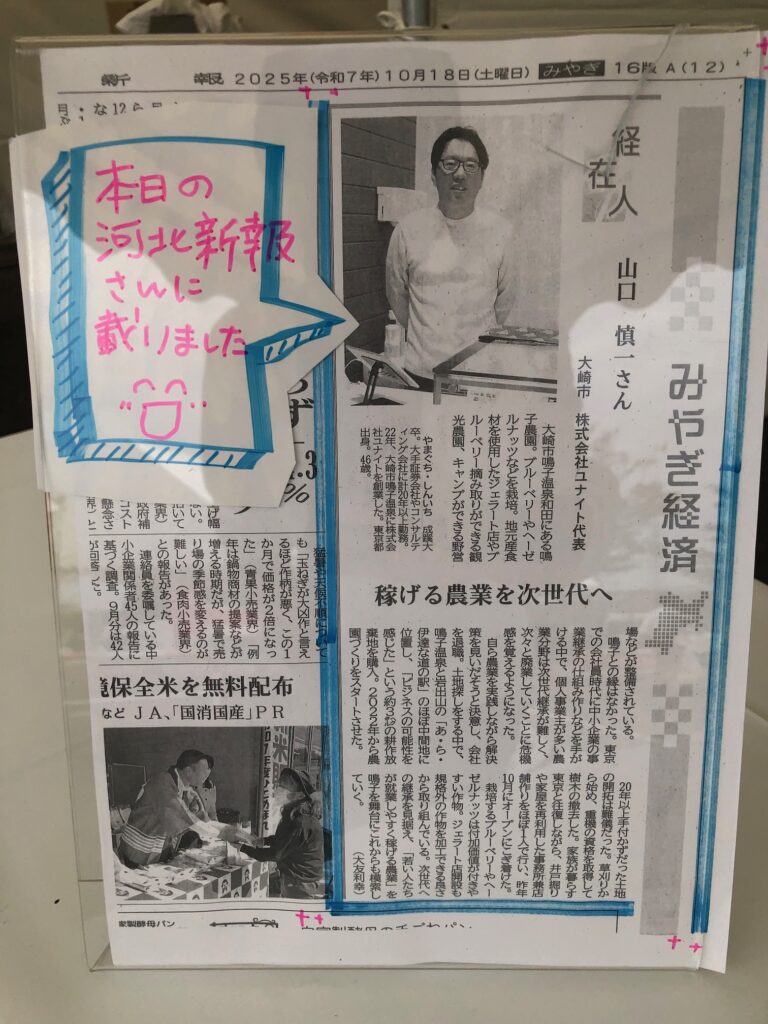 新 報 2025年(令和7年)10月18日(土曜日) みやぎ 16版 A(12)
本日の
河北新報
さんに
載りました
みやぎ経済
経済人
在
山口 慎一さん
大崎市 株式会社ユナイト代表
稼げる農業を次世代へ
大崎市鳴子温泉和田にある鳴
子農園。ブルーベリーやヘーゼ
ルナッツなどを栽培。地元産食
材を使用したジェラート店やブ
ルーベリー摘み取りができる観
光農園、キャンプができる野営
やまぐち・しんいち 成蹊大
卒。大手証券会社やコンサルテ
ィング会社に計20年以上勤務。
22年、大崎市鳴子温泉に株式会
社ユナイトを創業した。東京都
出身。46歳。
場などが整備されている。
鳴子との縁はなかった。東京
での会社員時代に中小企業の事
業継承の仕組み作りなどを手が
ける中で、個人事業主が多い農
業分野は次世代継承が難しく、
次々と廃業していくことに危機
感を覚えるようになった。
自ら農業を実践しながら解決
策を見いだそうと決意し、会社
を退職。土地探しをする中で、
鳴子温泉と岩出山の「あ・ら・
伊達な道の駅」のほぼ中間地に
位置し、「ビジネスの可能性を
感じた」という約3㌶の耕作放
棄地を購入。2022年から農
園づくりをスタートさせた。
20年以上手付かずだった土地
の開拓は難儀だった。草刈りか
ら始め、重機の資格を取得して
樹木の撤去した。家族が暮らす
東京と往復しながら、井戸掘り
や家屋を再利用した事務所兼店
舗作りをほぼ1人で行い、昨年
10月にオープンにこぎ着けた。
栽培するブルーベリーやヘー
ゼルナッツは付加価値が付きや
すい作物。ジェラート店開設も
規格外の作物を加工できる良さ
から取り組んでいる。次世代へ
の継承を見据え、「若い人たち
が就業しやすく稼げる農業」を
鳴子を舞台にこれからも模索し
ていく。 (大友利幸)
猛暑や天候不順について
も「玉ねぎが大凶作と言え
るほど作柄が悪く、この1
か月で価格が2倍になっ
た」(青果小売業界)「例
年は鍋物商材の提案などが
増える時期だが、猛暑で売
り場の季節感を変えるのが
難しい」(食肉小売業界)
との報告があった。
連絡員を委嘱している中
小企業関係者45人の報告に
基づく調査。9月分は42人
が回答した。
境保全米を無料配布
など JA、「国消国産」PR
家製酵母パン